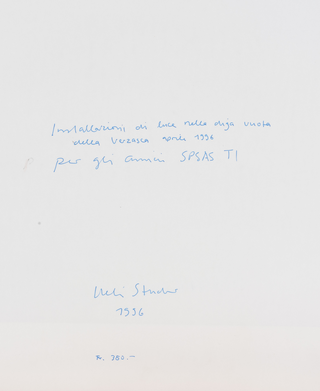 Installazioni di luce nella diga vuota
della Verzasca aprile 1996
per gli amici SPSAS TI
1996
Fr. 380.-